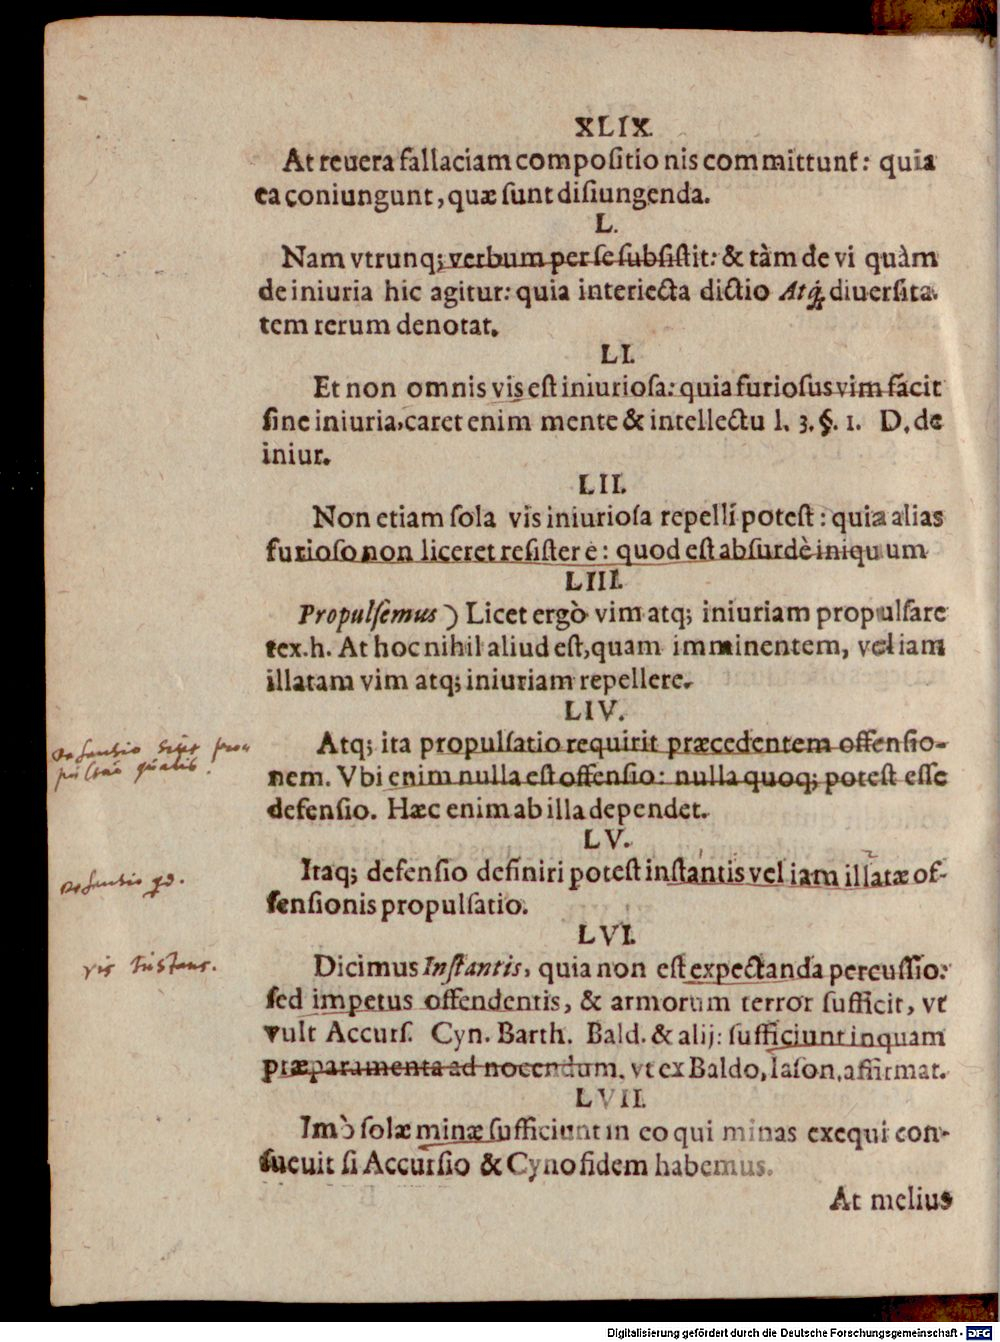 XLIX.
At reuera fallaciam compositio nis committunt: quia
ea coniungunt, quæ sunt disiungenda.
L.
Nam vtrunq; verbum per se subsistit: & tàm de vi quàm
de iniuria hic agitur: quia interiecta dictio Atq́; diuersita-
tem rerum denotat.
LI.
Et non omnis vis est iniuriosa: quia furiosus vim facit
sine iniuria, caret enim mente & intellectu l. 3. §. 1. D. de
iniur.
LII.
Non etiam sola vis iniuriosa repelli potest: quia alias
furioso non liceret resistere: quod est absurdè iniquum
LIII.
Propulsemus) Licet ergò vim atq; iniuriam propulsare
tex. h. At hoc nihil aliud est, quam imminentem, vel iam
illatam vim atq; iniuriam repellere.
LIV.
Atq; ita propulsatio requirit præcedentem offensio-
nem. Vbi enim nulla est offensio: nulla quoq; potest esse
defensio. Hæc enim ab illa dependet.
LV.
Itaq; defensio definiri potest instantis vel iam illatæ of-
fensionis propulsatio.
defensio
LVI.
Dicimus Instantis, quia non est expectanda percussio:
vis Instans.
sed impetus offendentis, & armorum terror sufficit, vt
vult Accurs. Cyn. Barth. Bald. & alij: sufficiunt inquam
præparamenta ad nocendum, vt ex Baldo, Iason, affirmat.
LVII.
Imò solæ minæ sufficiunt in eo qui minas exequi con-
sueuit si Accursio & Cyno fidem habemus.
At melius
Digitalisierung gefördert durch die Deutsche Forschungsgemeinschaft - DFG